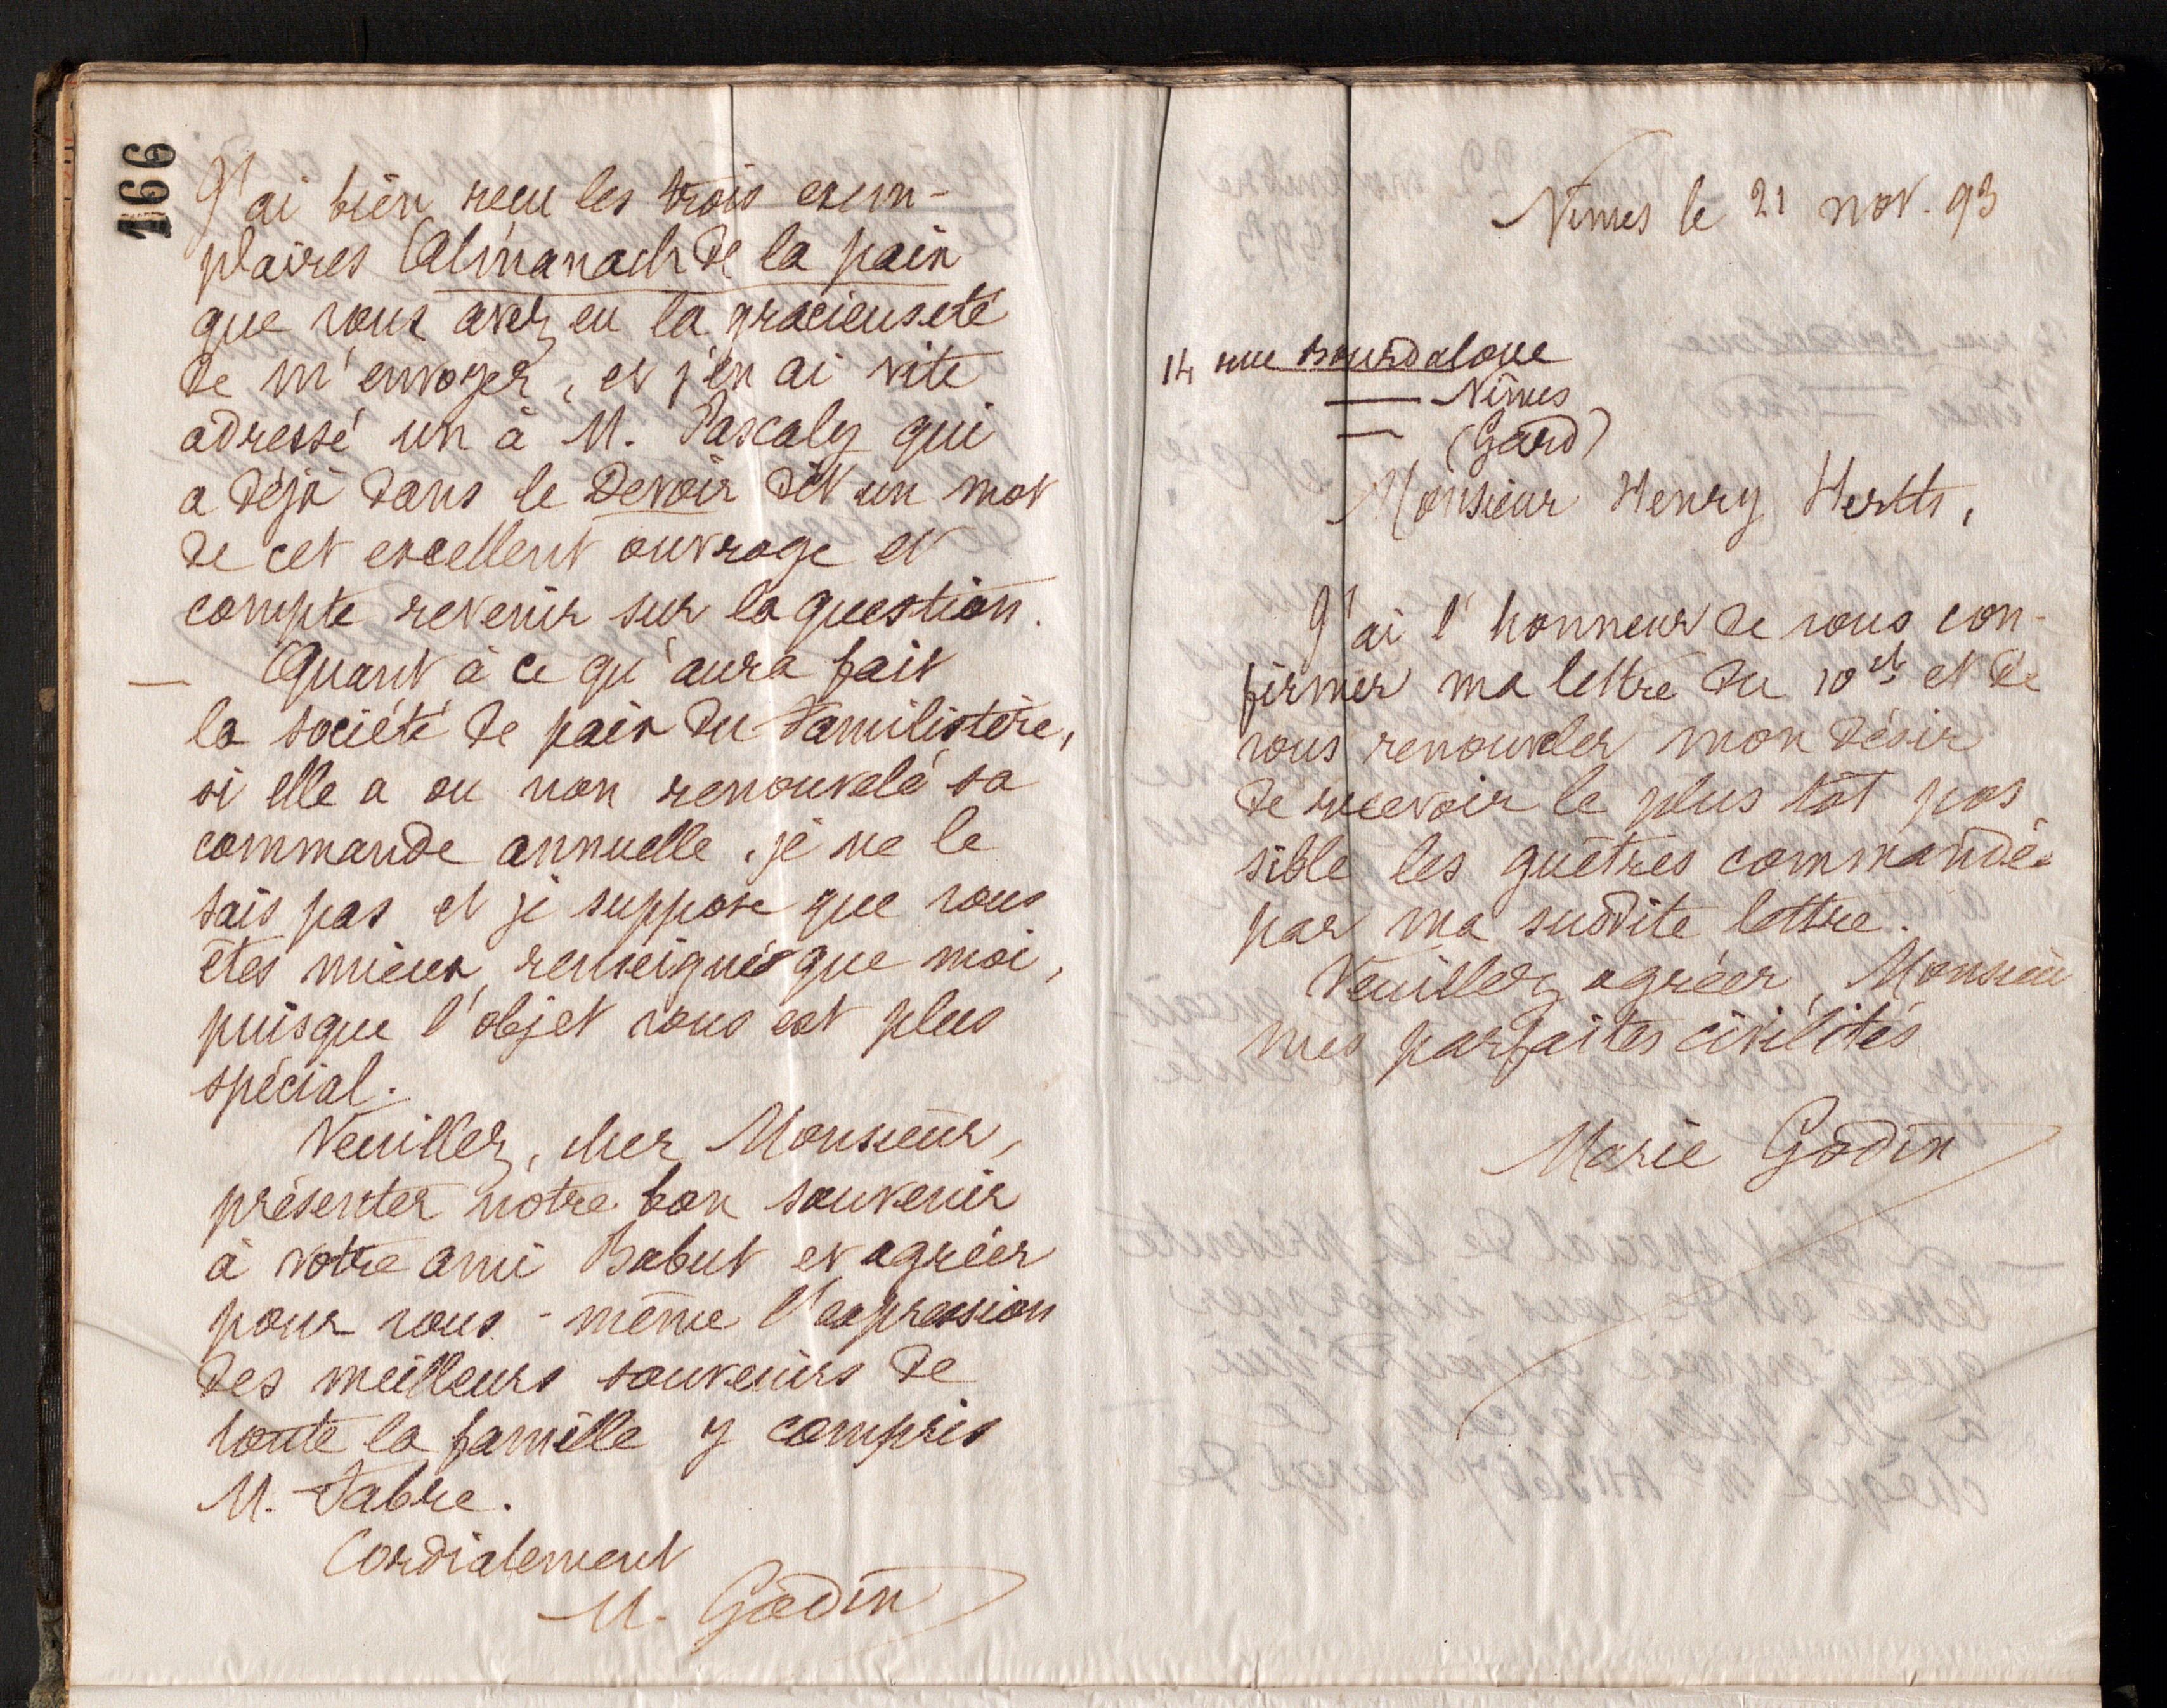 166
J'ai bien reçu les trois exem-
plaires Almanach de la paix
que vous avez eu la gracieuseté
de m'envoyer, et j'en ai vite
adressé un à M. Pascaly qui
a déjà dans le Devoir dit un mot
de cet excellent ouvrage et
compte revenir sur la question.
— Quant à ce qu'aura fait
la société de paix du Familistère,
si elle a ou non renouvelé sa
commande annuelle, je ne le
sais pas et je suppose que vous
êtes mieux renseigné que moi,
puisque l'objet vous est plus
spécial.
Veuillez, cher Monsieur,
présenter notre bon souvenir
à votre ami Babut et agréer
pour vous-même l'expression
des meilleurs souvenirs de
toute la famille y compris
M. Fabre.
Cordialement
M. Godin
Nîmes le 21 nov. 93
14 rue Bourdaloue
— Nîmes
— (Gard)
Monsieur Henry Herth,
J'ai l'honneur de vous con-
firmer ma lettre du 10 et de
vous renouveler mon désir
de recevoir le plus tôt pos
sible les guêtres commandées
par ma susdite lettre.
Veuillez agréer, Monsieur
mes parfaites civilités
Marie Godin